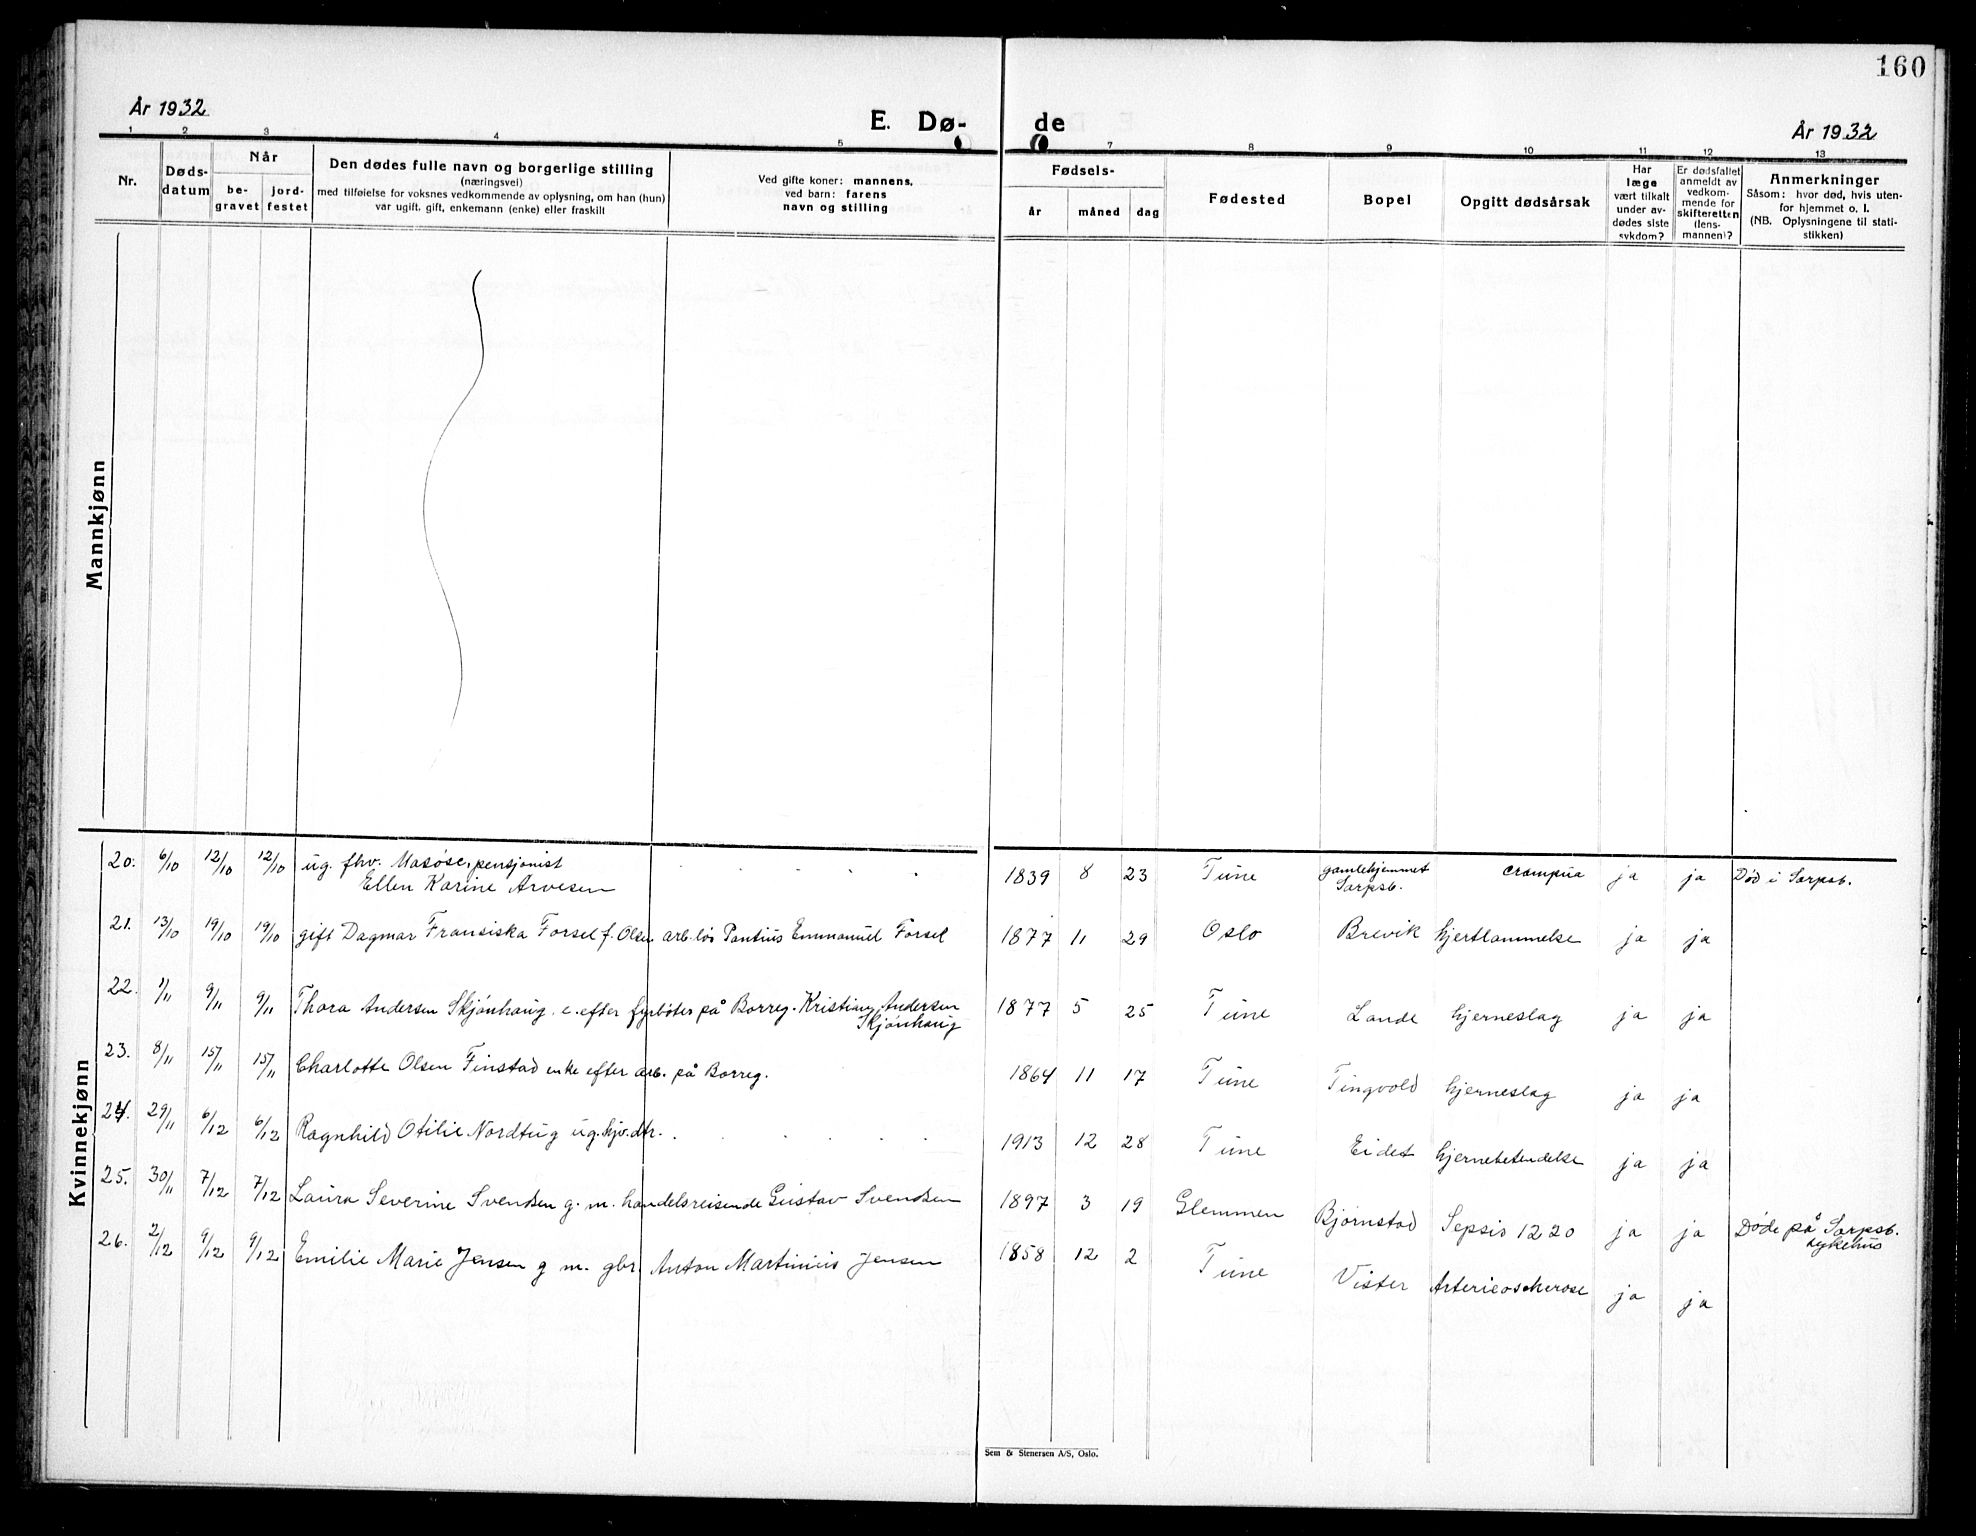 160
År 1932
E. Dø-
de
År 1932
1 2 3 4 5
7 8 9 10 11 12 13
Nr.
Døds-
datum
Når
be-
gravet
jord-
festet
Den dødes fulle navn og borgerlige stilling
(næringsvei)
med tilføielse for voksnes vedkommende av oplysning, om han (hun)
var ugift, gift, enkemann (enke) eller fraskilt
Ved gifte koner: mannens,
ved barn: farens
navn og stilling
Fødsels-
år
måned
dag
Fødested
Bopel
Opgitt dødsårsak
Har
læge
vært tilkalt
under av-
dødes siste
sykdom?
Er dødsfallet
anmeldt av
vedkom-
mende for
skifteretten
(lens-
mannen)?
Anmerkninger
Såsom: hvor død, hvis uten-
for hjemmet o. l.
(NB. Oplysningene til stati-
stikken)
Mannkjønn
Kvinnekjønn
20. 6/10 12/10 12/10 ug. fhv. pensjonist
Ellen Karine Arvesen
1839 8 23 Tune gamlehjemmet
Sarpsb.
ja ja Død i Sarpsb.
21. 13/10 19/10 19/10 gift Dagmar Fransiska Forsel f. Olsen arb.løs Pontius Emmanuel Forsel 1877 11 29 Oslo Brevik hjertlammelse ja ja
22. 1/11 9/11 9/11 Thora Andersen Skjønhaug. e. efter fyrbøter på Borreg. Kristian Andersen
Skjønhaug
1877 5 25 Tune Lande hjerneslag ja ja
23. 8/11 15/11 15/11 Charlotte Olsen Finstad enke efter arb. på Borreg. 1864 11 17 Tune Tingvold hjerneslag ja ja
24. 29/11 6/12 6/12 Ragnhild Otilie Nordtug ug. hjv. dtr. 1913 12 28 Tune Eidet hjernebetendelse ja ja
25. 30/11 7/12 7/12 Laura Severine Svendsen g. m. handelsreisende Gustav Svendsen 1897 3 19 Glemmen Bjørnstad Sepsis 1220 ja ja Døde på Sarpsb.
sykehus
26. 2/12 9/12 9/12 Emilie Marie Jensen g m. gbr. Anton Martinius Jensen 1858 12 2 Tune Vister ja ja
Sem & Stenersen A/S, Oslo.